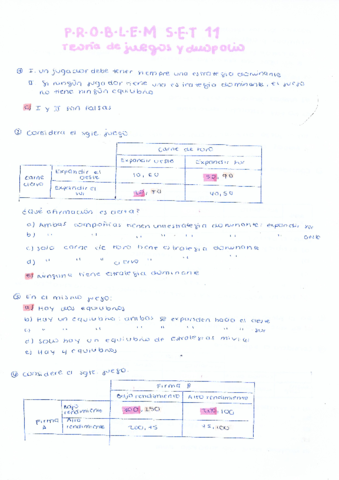 P·R·O·B·L·E·M SET 11
Teoría de juegos y duopolio
I. un jugador debe tener siempre una estrategia dominante
II. Si ningún jugador tiene una estrategia dominante, el juego
no tiene ningún equilibrio
I y II son falsas
② considera el sgte juego
carne de toro
Expandir oeste
Expandir sur
carne
Expandir el oeste
Expandir el sur
40, 50
¿Qué afirmación es cierta?
a) Ambas compañias tienen una estrategia dominante: expandir sur
b) " " " " " " oeste
c) solo carne de toro tiene estrategia dominante
d) " " " "
Ninguno tiene estrategia dominante
③ En el mismo juego:
a) Hay dos equilibrios
b) Hay un equilibrio: ambos se expanden hacia el oeste
" " " " " sur
Solo hay un equilibrio de estrategias mixtas
e) Hay 4 equilibrios
④ considere el sgte juego:
Firma B
Bajo rendimiento
Alto rendimiento
Firma
Bajo rendimiento
Alto rendimiento